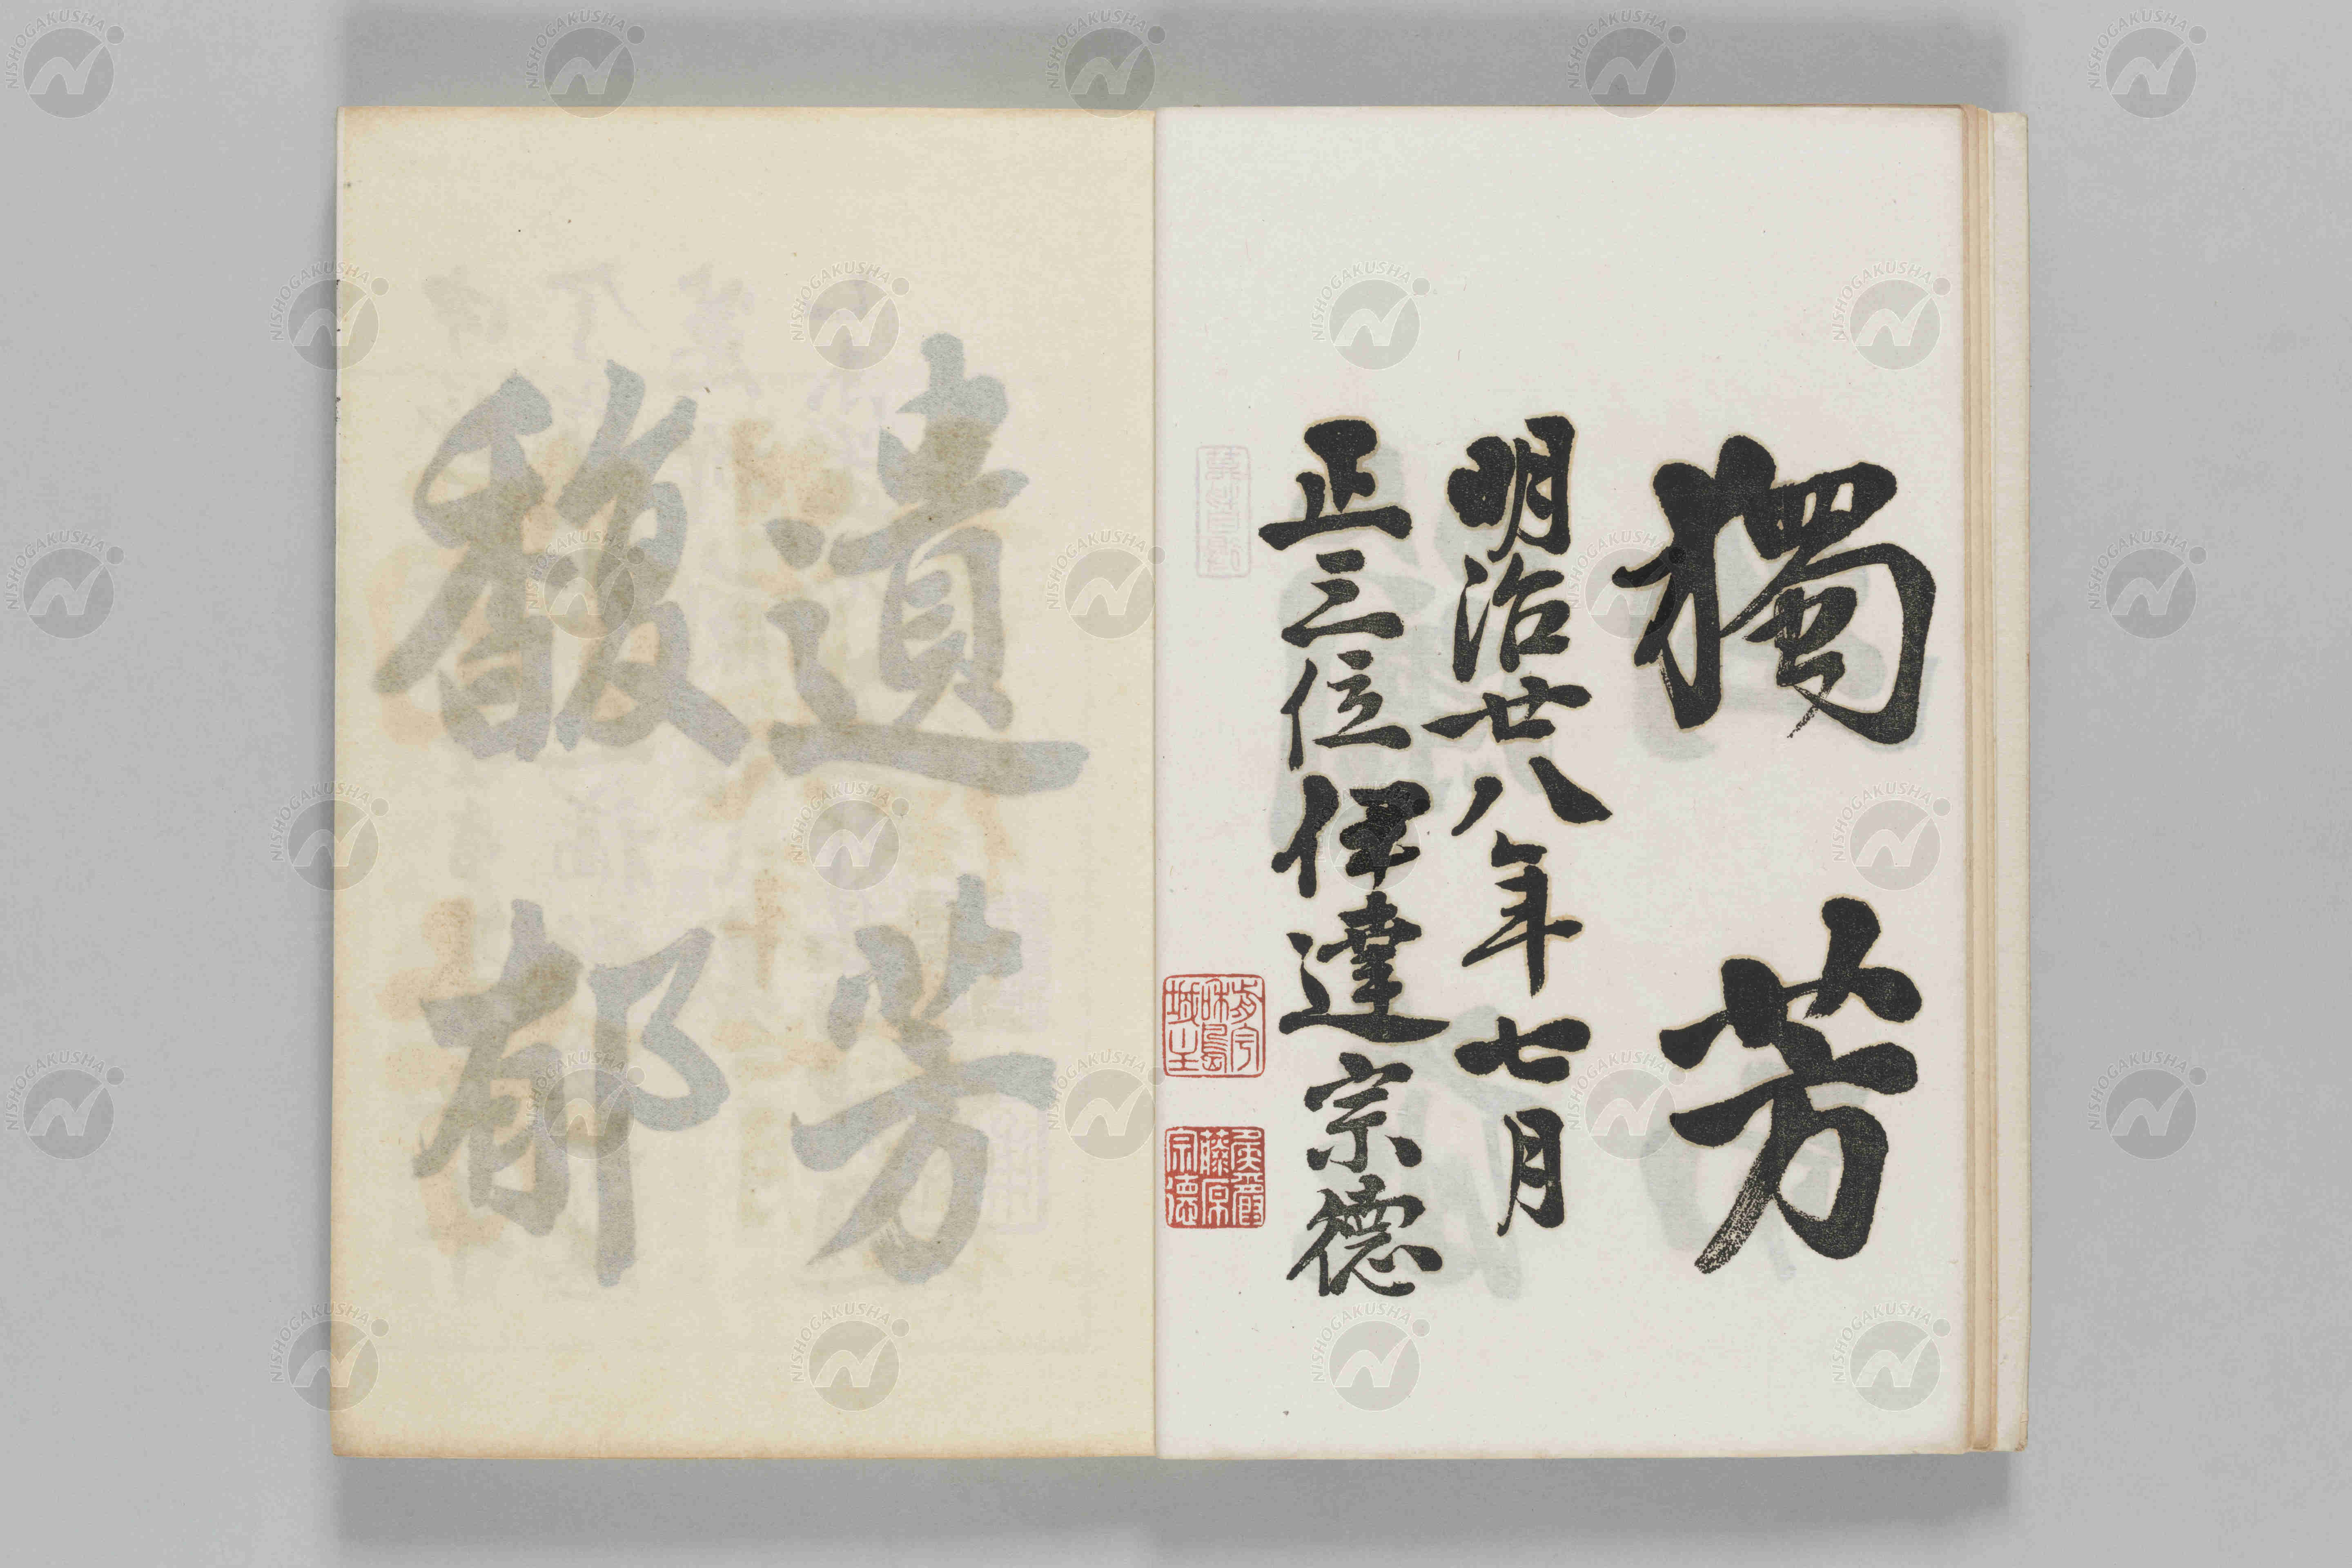 獨芳
明治廿八年七月
正三位伊達宗德
遺芳
馥郁
NISHOGAKUSHA